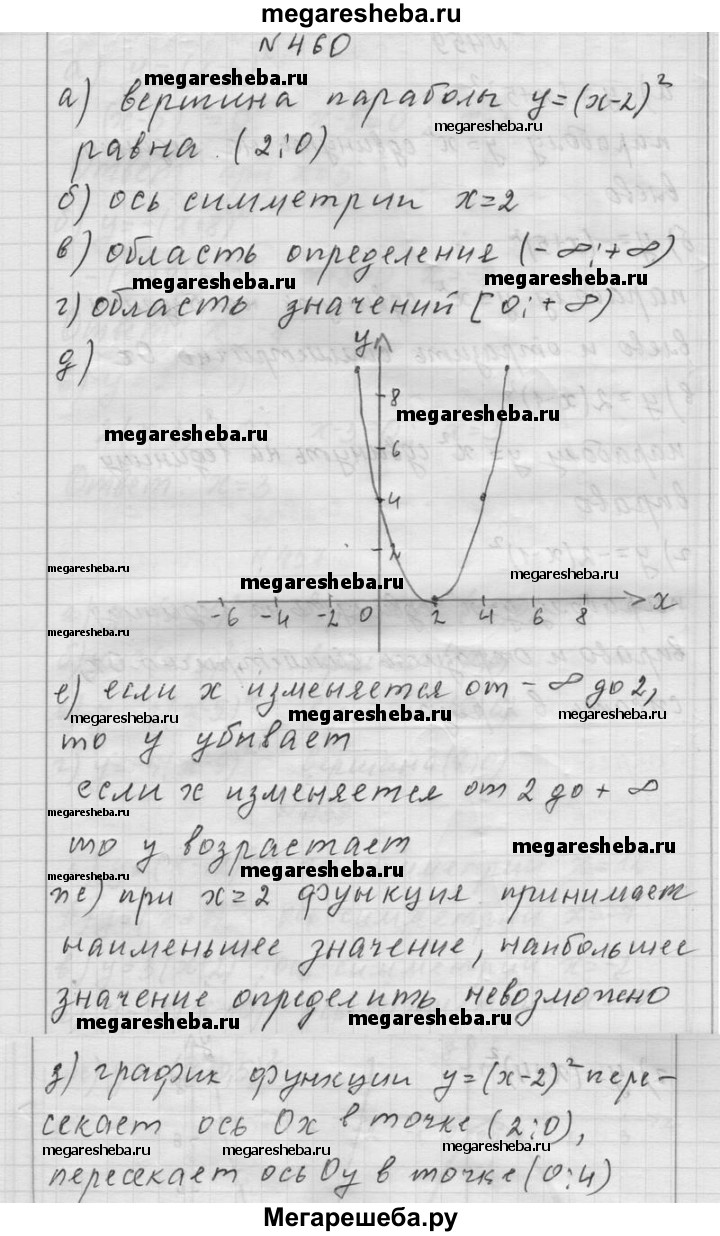 megaresheba.ru
N460
megaresheba.ru
а) вершина параболы y=(x-2)²
megaresheba.ru
равна (2;0)
б) ось симметрии x=2
в) область определения (-∞;+∞)
megaresheba.ru megaresheba.ru
г) область значений [0;+∞)
д)
y
8
megaresheba.ru
megaresheba.ru
6
4
2
megaresheba.ru megaresheba.ru megaresheba.ru
-6 -4 -2 0 2 4 6 8 x
megaresheba.ru
е) если x изменяется от -∞ до 2,
megaresheba.ru megaresheba.ru megaresheba.ru
то y убывает
если x изменяется от 2 до +∞
то y возрастает
megaresheba.ru
megaresheba.ru megaresheba.ru
ж) при x=2 функция принимает
наименьшее значение, наибольшее
значение определить невозможно
megaresheba.ru megaresheba.ru
з) график функции y=(x-2)² пере-
секает ось Ox в точке (2;0),
megaresheba.ru megaresheba.ru megaresheba.ru
пересекает ось Oy в точке (0;4)
Мегарешеба.ру